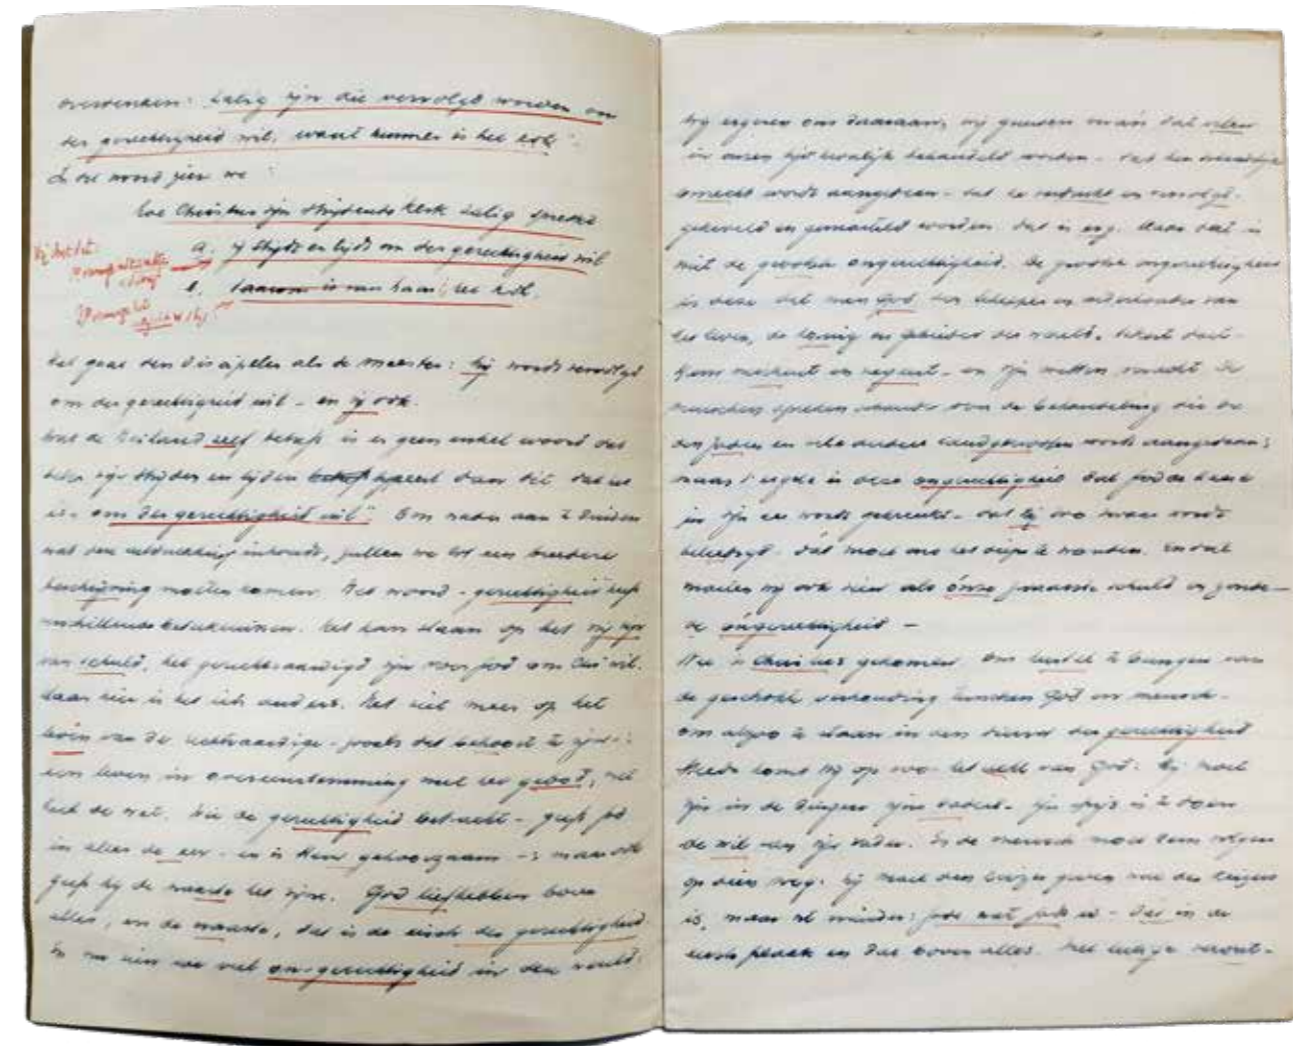 overdenken: Zalig zijn die vervolgd worden om
der gerechtigheid wil, want hunner is het
In dit woord zien we:
hoe Christus zijn strijdende Kerk zalig spreekt
a. zij strijdt en lijdt om der gerechtigheid wil
b. daarom is van haar: het
Het gaat den discipelen als de meester: hij wordt vervolgd
om der gerechtigheid wil - en zij ook.
wat de Heiland zelf betreft is er geen enkel woord dat
beter zijn strijden en lijden typeert dan dit dat het
is: "om der gerechtigheid wil". Om nader aan te duiden
wat deze uitdrukking inhoudt, zullen we tot een breedere
beschrijving moeten komen. Het woord "gerechtigheid" heeft
verschillende beteekenissen. Het kan slaan op het vrij zijn
van schuld, het gerechtvaardigd zijn voor God om Chrs wil.
Maar hier is het iets anders. Het ziet meer op het
leven van de rechtvaardige - zooals dat behoort te zijn:
een leven in overeenstemming met het gebod, met
heel de wet. Wie de gerechtigheid betracht - geeft God
in alles de eer - en is Hem gehoorzaam -; maar ook
geeft hij de naaste het zijne. God liefhebben boven
alles, en de naaste, dat is de eisch der gerechtigheid
En nu zien we veel on-gerechtigheid in deze wereld:
wij ergeren ons daaraan, wij
in onzen tijd behandeld worden - dat hen
onrecht wordt aangedaan - dat ze verdrukt en vervolgd -
gekneveld en gemarteld worden. dat is erg. Maar dat is
niet de grootste ongerechtigheid. De grootste ongerechtigheid
is deze dat men God, den Schepper en onderhouder van
het leven, de koning en gebieder der wereld, tekort doet -
Hem miskent en negeert - en zijn wetten veracht. De
menschen spreken van de behandeling die
den Joden en vele andere landgenooten wordt aangedaan;
maar 't ergste is deze ongerechtigheid dat God
in zijn eer wordt gekrenkt - dat hij zoo zwaar wordt
beleedigd. Dat moet ons het diepst wonden. En dat
moeten wij ook zien als ónze zwaarste schuld en zonde -
de óngerechtigheid -
Nu is Christus gekomen om herstel te brengen van
de geschokte verhouding tusschen God en mensch -
om alzoo te staan in den dienst der gerechtigheid
Steeds komt hij op voor het recht van God: hij moet
zijn in de dingen zijns vaders - zijn spijs is te doen
de wil van zijn vader. En de mensch moet Hem volgen
op dien weg. hij moet den keizer geven wat des keizers
is, maar niet minder: Gode wat Gods is - Dat in de
eerste plaats en dat boven alles. Het